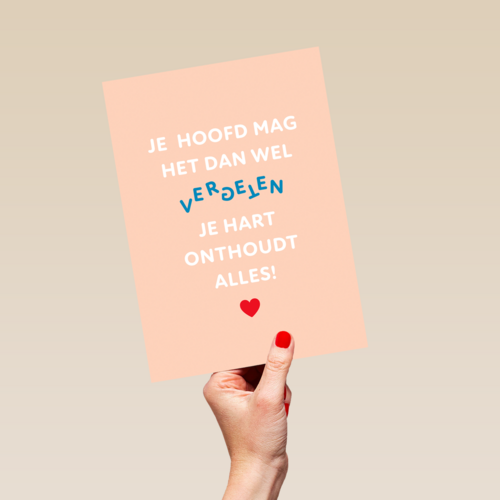 JE HOOFD MAG
HET DAN WEL
VERGETEN
JE HART
ONTHOUDT
ALLES!